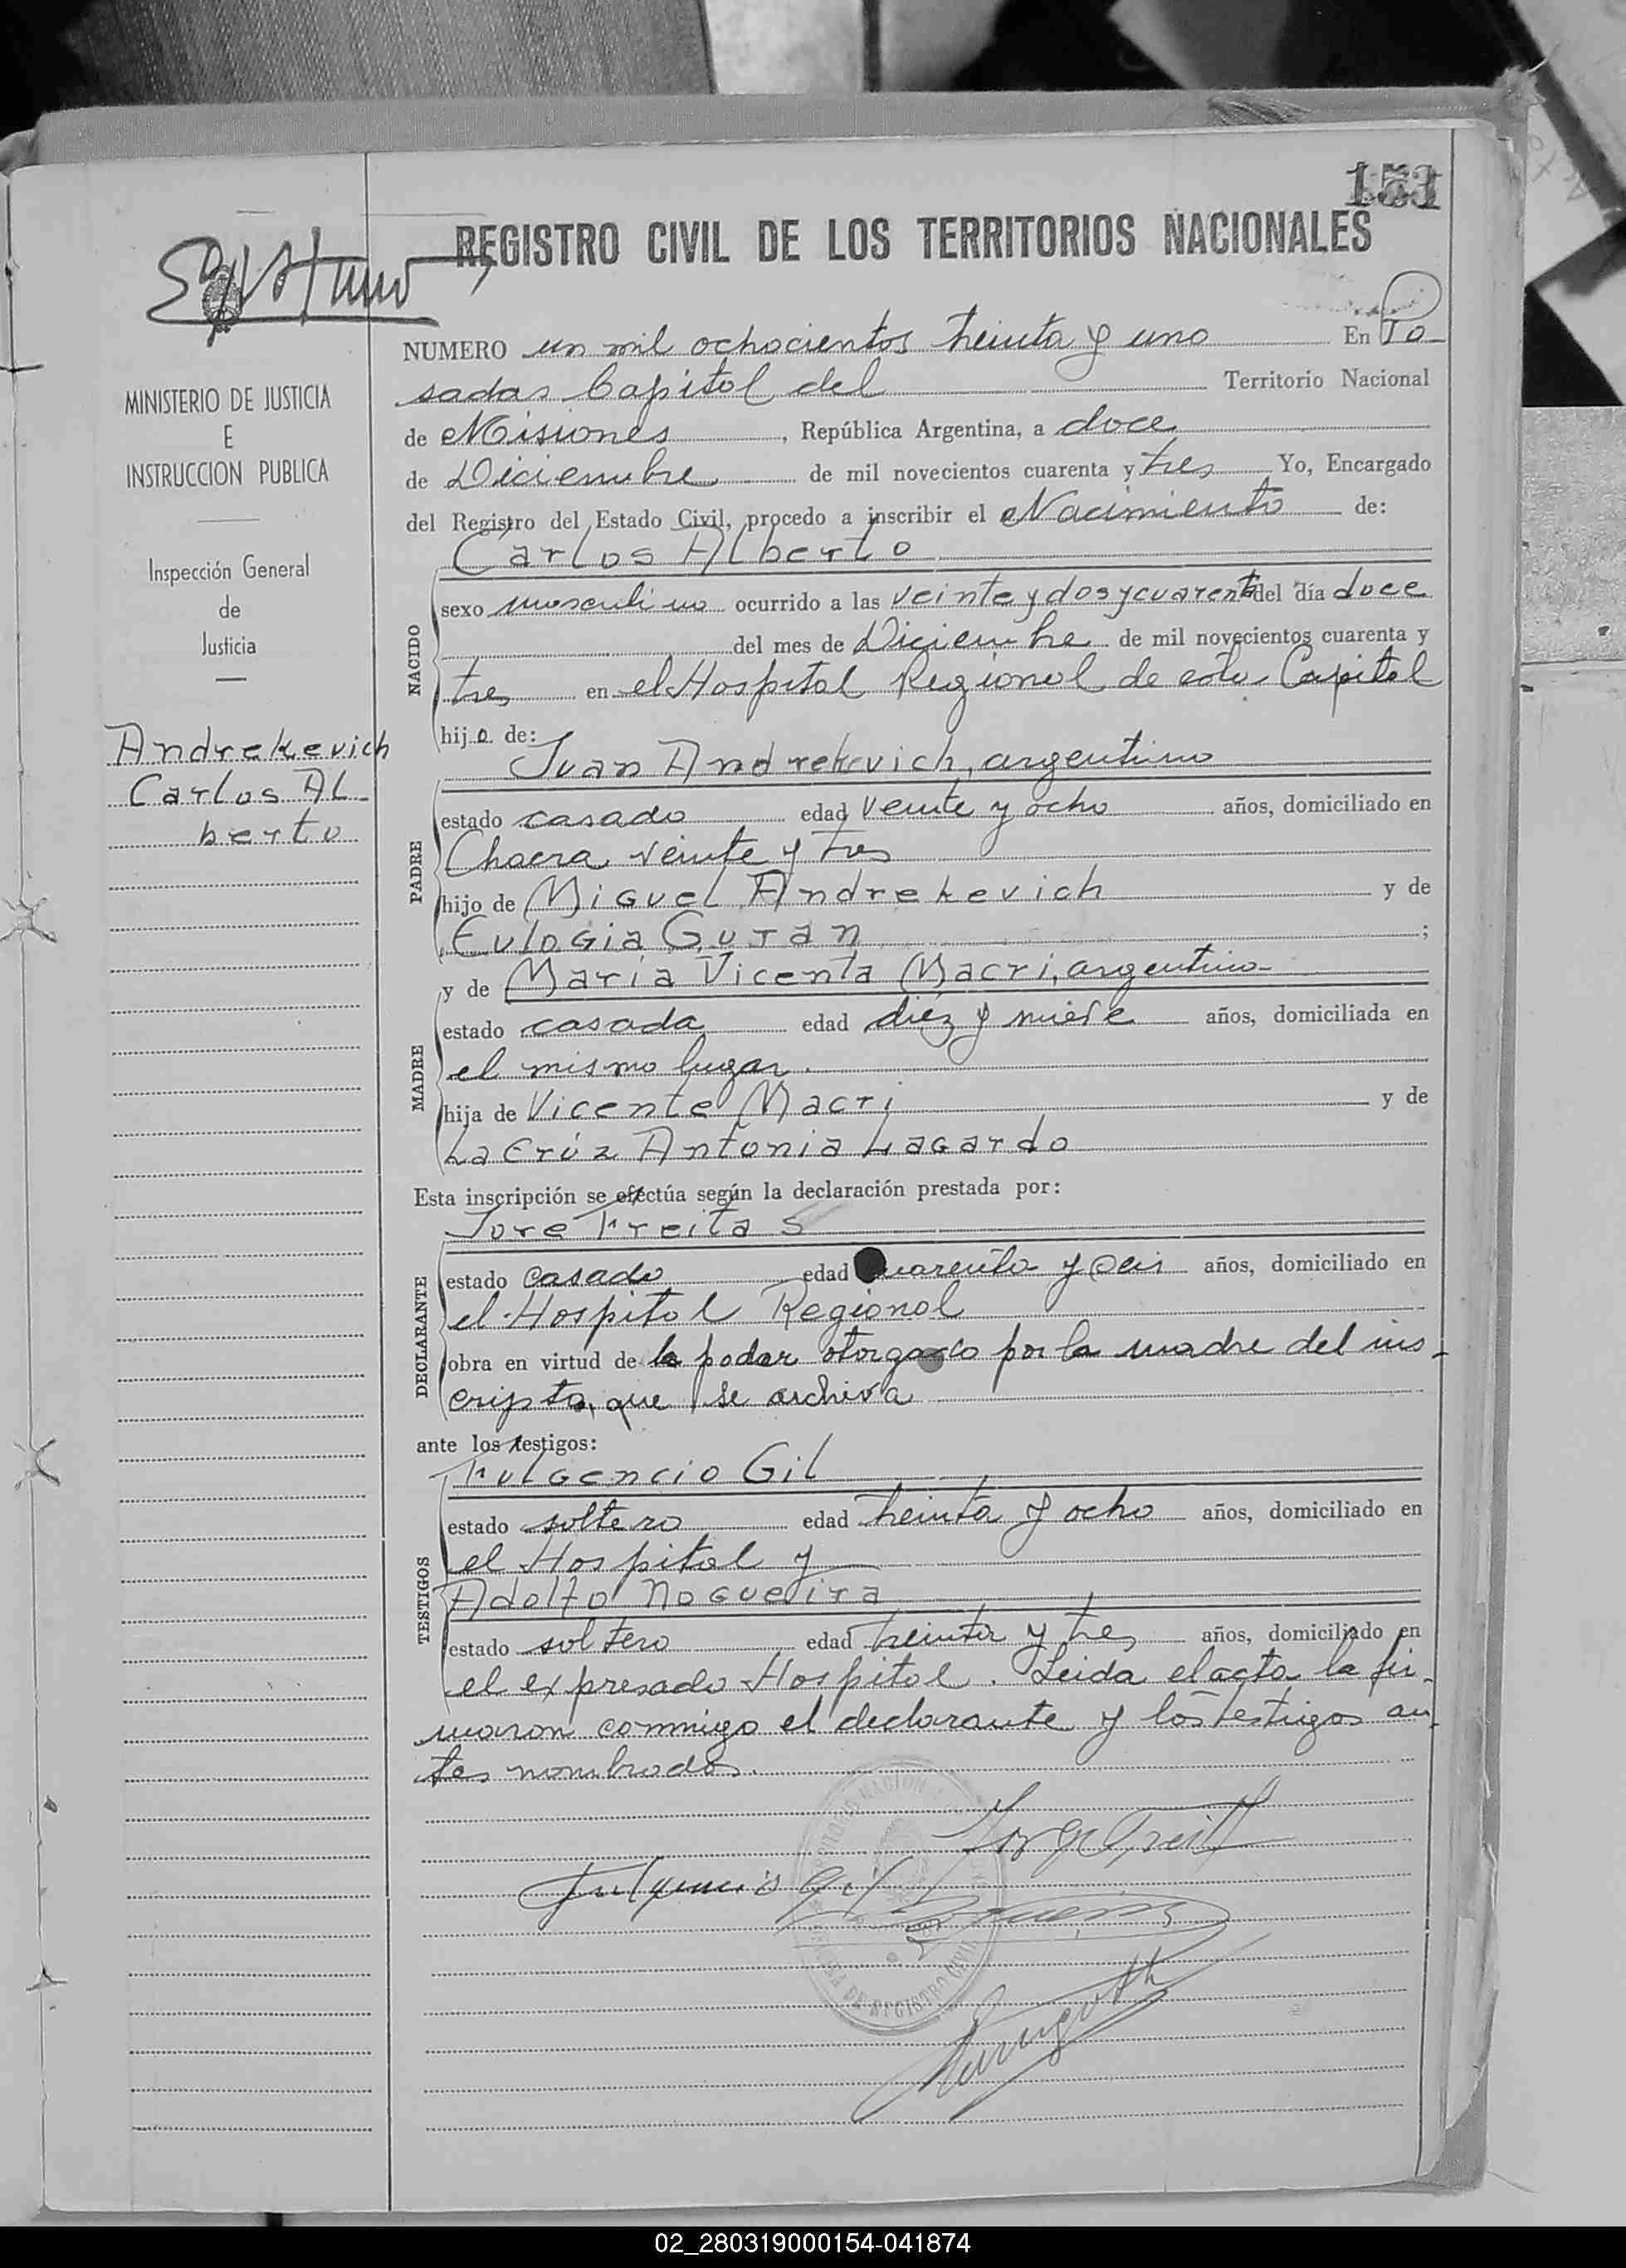 151
REGISTRO CIVIL DE LOS TERRITORIOS NACIONALES
MINISTERIO DE JUSTICIA
E
INSTRUCCION PUBLICA
Inspección General
de
Justicia
Andrekevich
Carlos Al-
berto
NUMERO un mil ochocientos treinta y uno En Po
sadas Capital del Territorio Nacional
de Misiones, República Argentina, a doce
de Diciembre de mil novecientos cuarenta y tres Yo, Encargado
del Registro del Estado Civil, procedo a inscribir el Nacimiento de:
Carlos Alberto
NACIDO
sexo masculino ocurrido a las veinte y dos y cuarenta del día doce
del mes de Diciembre de mil novecientos cuarenta y
tres en el Hospital Regional de esta Capital
hijo de:
Juan Andrekevich, argentino
PADRE
estado casado edad veinte y ocho años, domiciliado en
Chacra veinte y tres
hijo de Miguel Andrekevich y de
Eulogia Guran;
y de Maria Vicenta Macri, argentina
MADRE
estado casada edad diez y nueve años, domiciliada en
el mismo lugar.
hija de Vicente Macri y de
La Crúz Antonia Lagardo
Esta inscripción se efectúa según la declaración prestada por:
Jore Freitas
DECLARANTE
estado casado edad cuarenta y seis años, domiciliado en
el Hospital Regional
obra en virtud de poder otorgado por la madre del ins-
cripto, que se archiva
ante los testigos:
Fulgencio Gil
TESTIGOS
estado soltero edad treinta y ocho años, domiciliado en
el Hospital y
Adolfo Nogueira
estado soltero edad treinta y tres años, domiciliado en
el expresado Hospital. Leida el acta la fir-
maron conmigo el declarante y los testigos an-
tes nombrados.
Fulgencio Gil
02_280319000154-041874